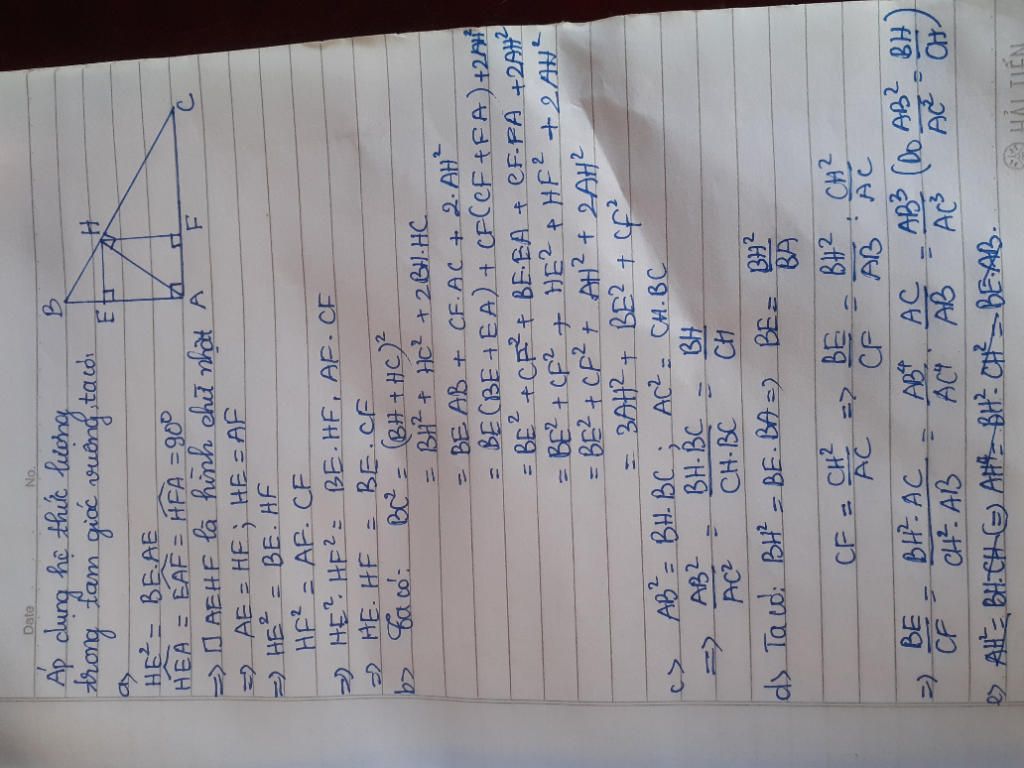 Date
No.
Áp dụng hệ thức lượng
trong tam giác vuông, ta có:
B
E
H
A
F
C
a)
HE² = BE.AE
HEA = EAF = HFA = 90°
=> □ AEHF là hình chữ nhật
=> AE = HF ; HE = AF
=> HE² = BE.HF
HF² = AF.CF
=> HE².HF² = BE.HF.AF.CF
=> HE.HF = BE.CF
b) Ta có: BC² = (BH + HC)²
= BH² + HC² + 2BH.HC
= BE.AB + CF.AC + 2.AH²
= BE(BE + EA) + CF(CF + FA) + 2AH²
= BE² + CF² + BE.BA + CF.FA + 2AH²
= BE² + CF² + HE² + HF² + 2AH²
= BE² + CF² + AH² + 2AH²
= 3AH² + BE² + CF²
c) AB² = BH.BC ; AC² = CH.BC
=> AB²/AC² = BH.BC/CH.BC = BH/CH
d) Ta có: BH² = BE.BA => BE = BH²/BA
CF = CH²/AC => BE/CF = BH²/AB : CH²/AC
=> BE/CF = BH².AC/CH².AB = AB⁴/AC⁴ . AC/AB = AB³/AC³ (Do AB²/AC² = BH/CH)
e) AH² = BH.CH (=) AH⁴ = BH².CH² = BE.AB.
HẢI TIẾN